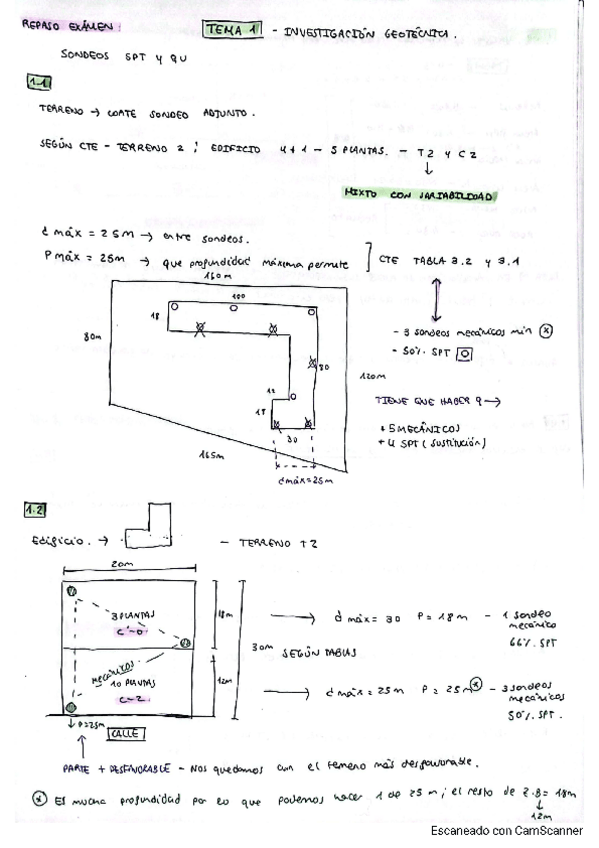 REPASO EXÁMEN:
TEMA 1 - INVESTIGACIÓN GEOTÉCNICA.
SONDEOS SPT Y QU
1.1
TERRENO → CORTE SONDEO ADJUNTO.
SEGÚN CTE - TERRENO 2 ; EDIFICIO 4+1 - 5 PLANTAS. - T2 Y C2
↓
MIXTO CON VARIABILIDAD
d máx = 25m → entre sondeos.
P máx = 25m → que profundidad máxima permite ] CTE TABLA 3.2 y 3.1
160m
100
18
80m
- 3 sondeos mecánicos min
- 50% SPT
30
120m
12
TIENE QUE HABER 9 →
+ 5 MECÁNICOS
+ 4 SPT (SUSTITUCIÓN)
30
165m
dmáx = 25m
1.2
Edificio. → - TERRENO T2
20m
3 PLANTAS
C-0
18m
→ d máx = 30 P = 18m - 1 sondeo mecánico
66% SPT
30m SEGÚN TABLAS
MECÁNICOS
10 PLANTAS
C-2
12m
→ d máx = 25m P = 25m* - 3 sondeos mecánicos
50% SPT.
P=25m
CALLE
PARTE + DESFAVORABLE - Nos quedamos con el terreno más desfavorable.
* Es mucha profundidad por lo que podemos hacer 1 de 25m ; el resto de 2.8 = 18m
↓
12m
Escaneado con CamScanner